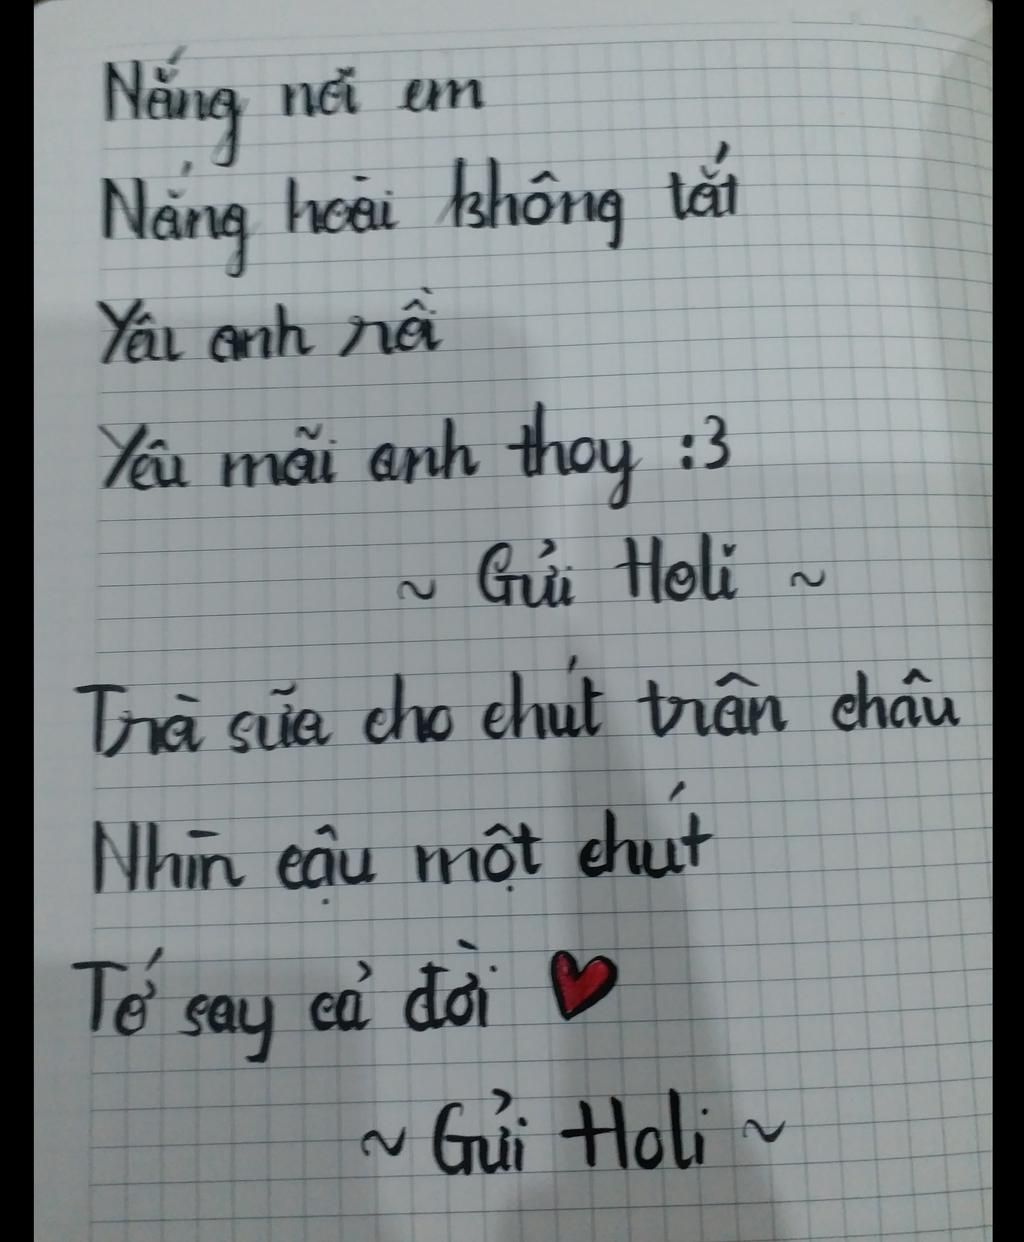 Nắng nơi em
Nắng hoài không tắt
Yêu anh rồi
Yêu mãi anh thoy :3
~ Gửi Holi ~
Trà sữa cho chút trân châu
Nhìn cậu một chút
Tớ say cả đời
~ Gửi Holi ~